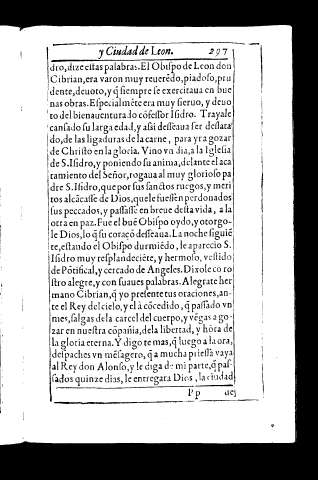 y Ciudad de Leon. 297
dro, dize estas palabras. El Obispo de Leon don
Cibrian, era varon muy reuerẽdo, piadoso, pru
dente, deuoto, y q̃ siempre se exercitaua en bue
nas obras. Especialmẽte era muy sieruo, y deuo
to del bienauentura.lo cõfessor Isidro. Trayale
cansado su larga edad, y assi desseaua ser desata
do, de las ligaduras de la carne, para yr a gozar
de Christo en la gloria. Vino vn dia, a la Iglesia
de S. Isidro, y poniendo su anima, delante el aca
tamiento del Señor, rogaua al muy glorioso pa
dre S. Isidro, que por sus sanctos ruegos, y meri
tos alcãcasse de Dios, que le fuessen perdonados
sus peccados, y passasse en breue desta vida, a la
otra en paz. Fue el buẽ Obispo oydo, y otorgo-
le Dios, lo q̃ su coraçõ desseaua. La noche siguiẽ
te, estando el Obispo durmiẽdo, le aparecio S.
Isidro muy resplandeciẽte, y hermoso, vestido
de Põtifical, y cercado de Angeles. Dixole co ro
stro alegre, y con suaues palabras. Alegrate her
mano Cibrian, q̃ yo presente tus oraciones, an-
te el Rey del cielo, y el à cõcedido, q̃ passado vn
mes, salgas de la carcel del cuerpo, y vẽgas a go-
zar en nuestra cõpañia, de la libertad, y hora de
la gloria eterna. Y digo te mas, q̃ luego a la ora,
despaches vn mẽsagero, q̃ a mucha priessa vaya
al Rey don Alonso, y le diga de mi parte, q̃ pas-
sados quinze dias, le entregara Dios, la ciudad
Pp